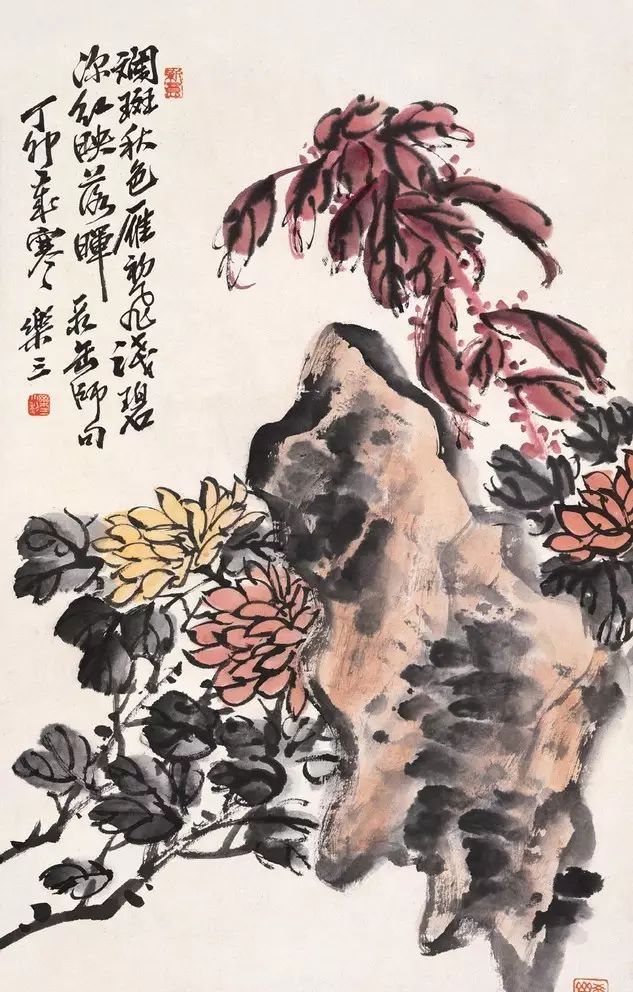 斕斑秋色雁初飛淺碧
深紅映落暉 录缶師句
丁卯歲寒 樂三